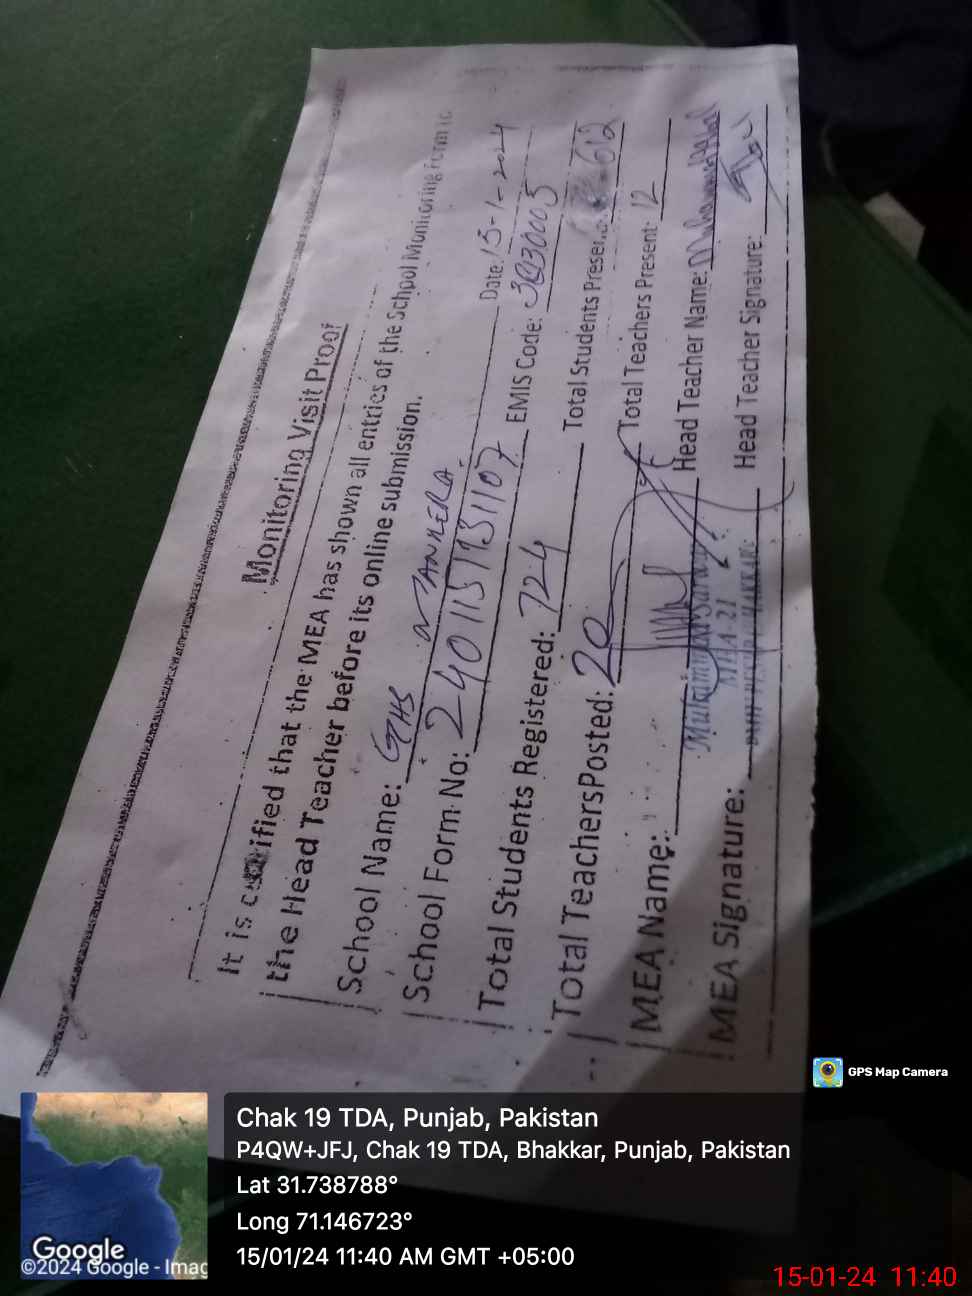 Monitoring Visit Proof
It is certified that the MEA has shown all entries of the School Monitoring Form to
the Head Teacher before its online submission.
School Name: GHS MANKERA. Date: 15-1-2024
School Form No: 2401151731107 EMIS Code: 38230005
Total Students Registered: 724 Total Students Present: 612
Total TeachersPosted: 20 Total Teachers Present: 12
MEA Name: Head Teacher Name: Muhammad Iqbal
MEA-21
MEA Signature: Head Teacher Signature:
GPS Map Camera
Chak 19 TDA, Punjab, Pakistan
P4QW+JFJ, Chak 19 TDA, Bhakkar, Punjab, Pakistan
Lat 31.738788°
Long 71.146723°
15/01/24 11:40 AM GMT +05:00
Google
©2024 Google - Imag
15-01-24 11:40